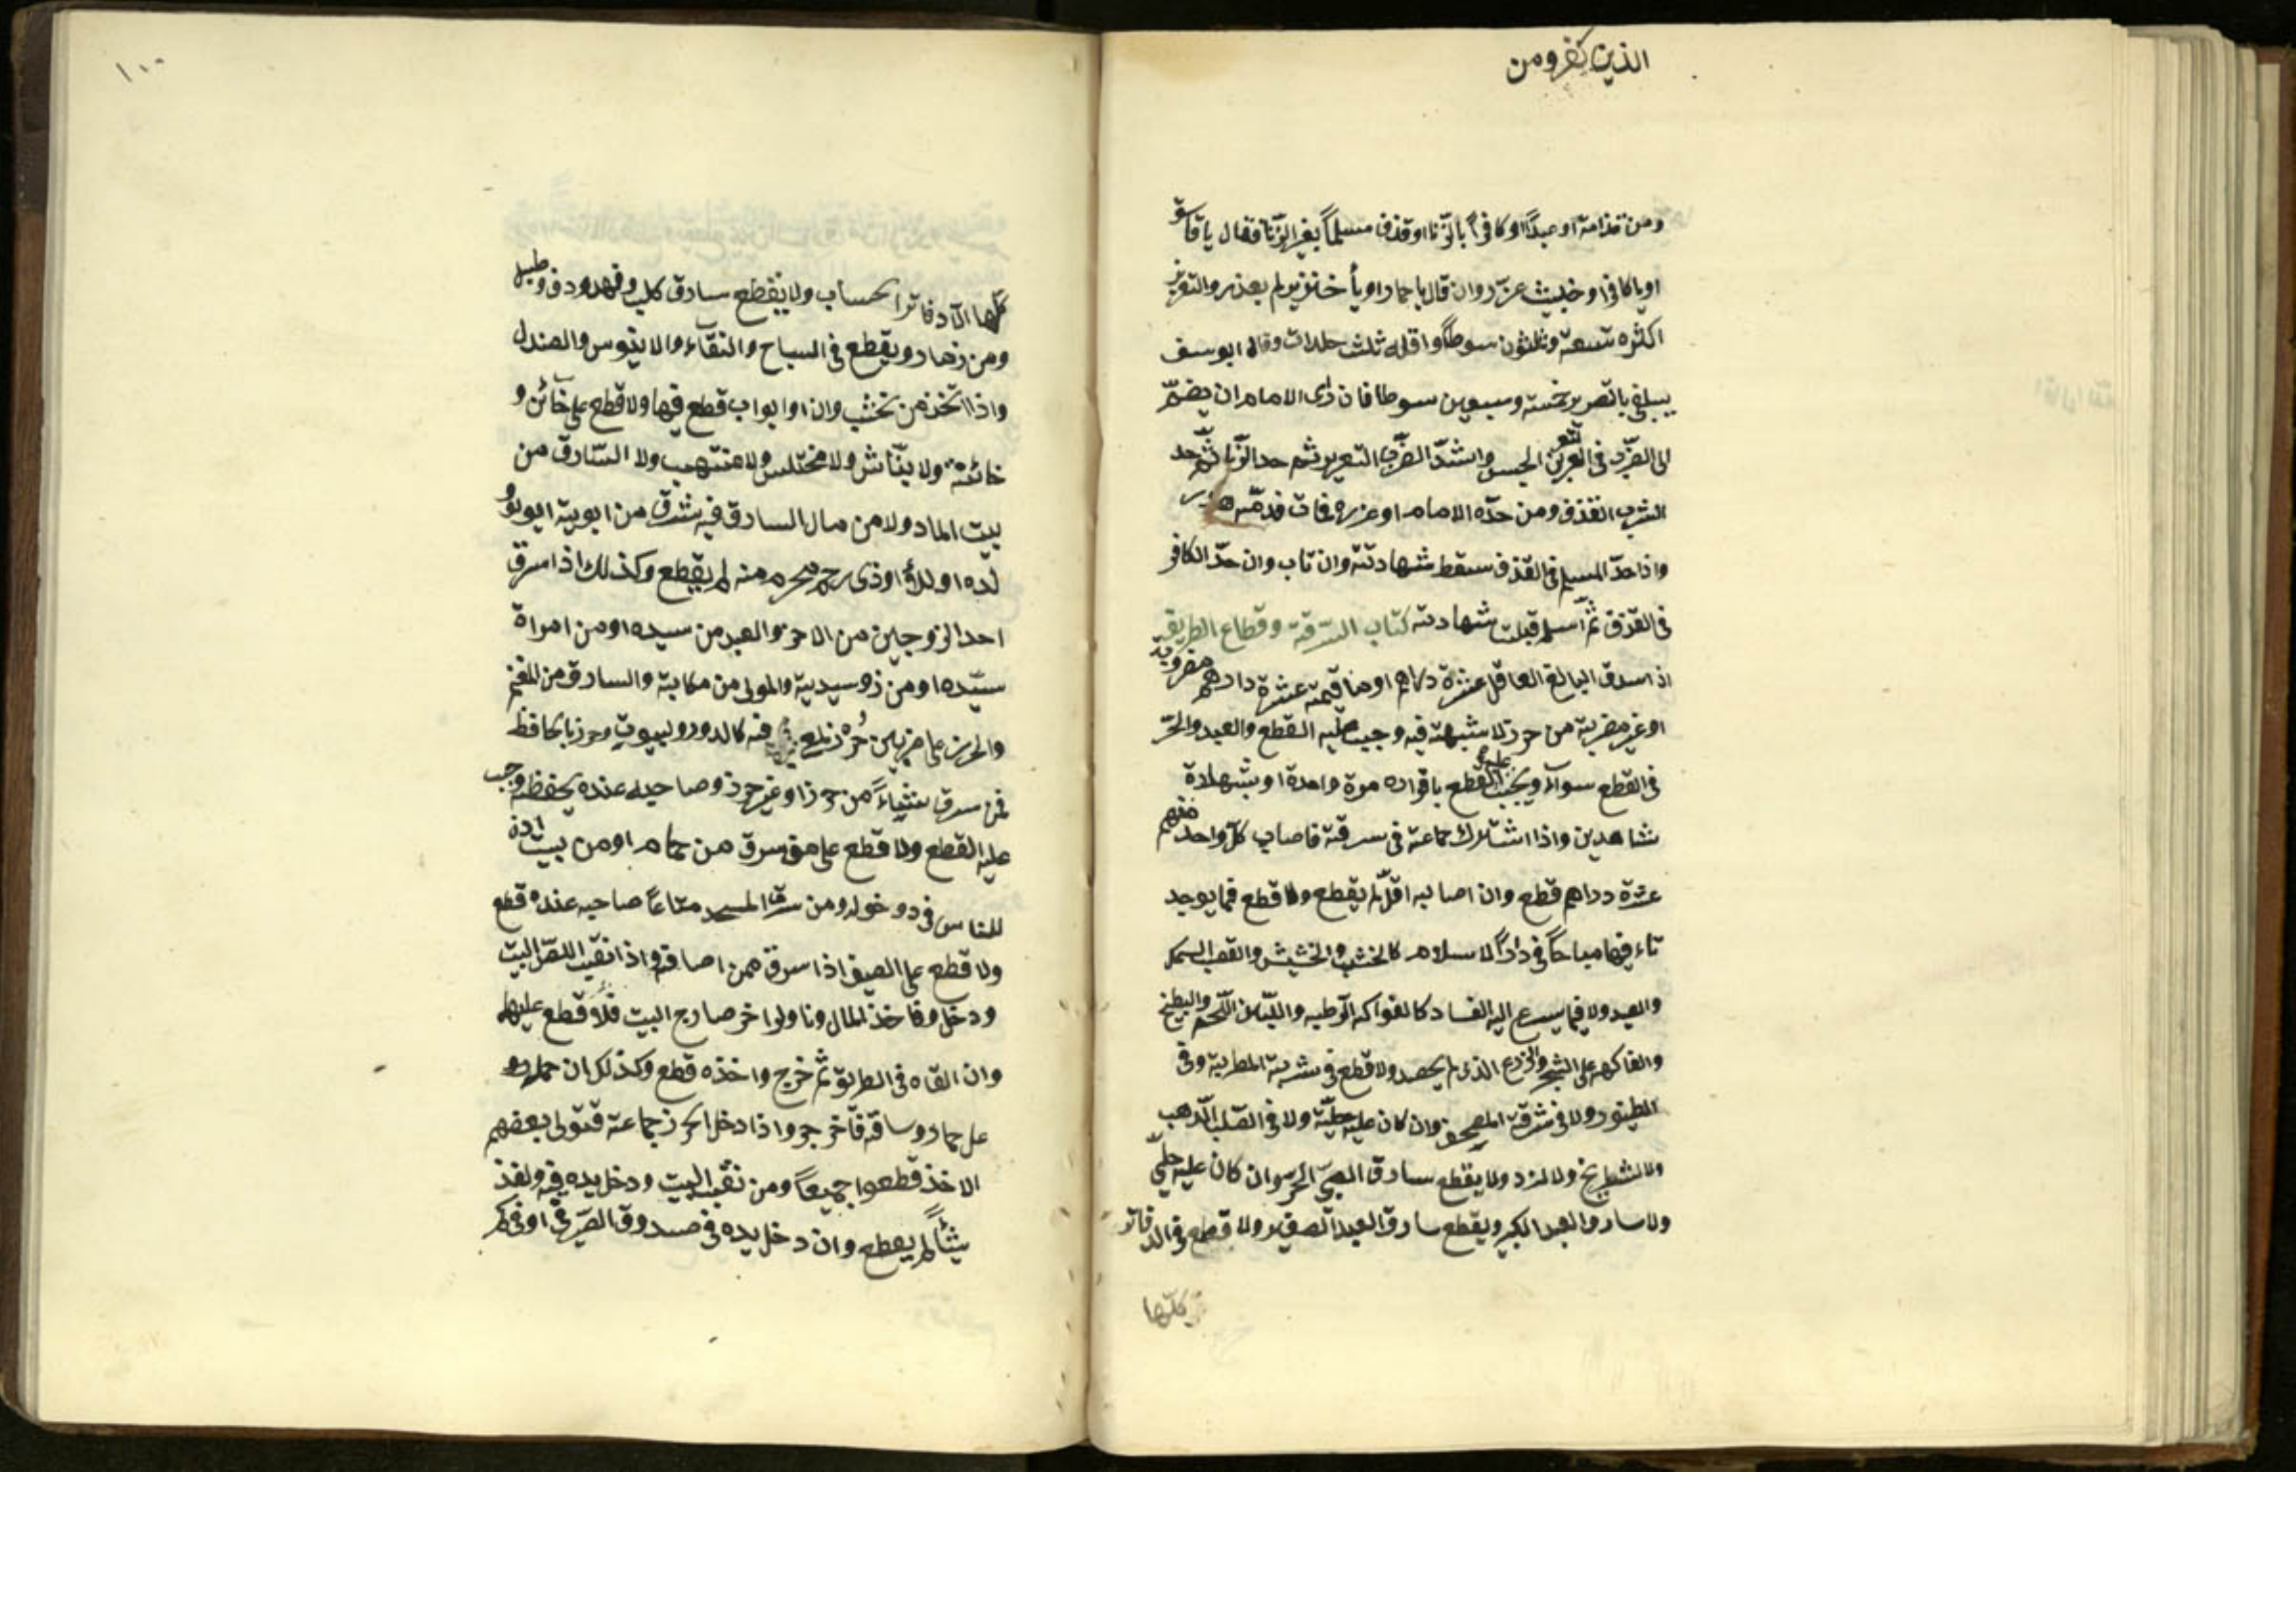 الذين كفرو من
ومن قذامة او عبدًا او كافرًا بالزّنا او قذف مسلمًا بغير الزّنا فقال يا فاسق
او يا كافر او خبيث عزّر وان قال يا حمار او يا خنزير لم يعذر والتعزير
اكثره تسعة وثلثون سوطًا واقله ثلث جلدات وقال ابو سف
يبلغ بالتعزير خمسة وسبعين سوطا فان رأى الامام ان يضمّ
الى الضّرب في التعزير الحبس واشدّ الضّرب التعزير ثم حد الزّنا ثمّ حد
الشرب القذف ومن حدّه الامام او عزره فمات فدمّه هدر
واذا حدّ المسلم في القذف سقط شهادته وان تاب وان حدّ الكافر
في القذف ثمّ اسلم قبلت شهادته كتاب السّرقة وقطاع الطريق
اذا سرق البالغ العاقل عشرة دراهم او ما قيمته عشرة دارهم مضروبة
او غير مضربة من حرز لا شبهة فيه وجب عليه القطع والعبد والحرّ
في القطع سوآء ويجب القطع عليه باقراره مرة واحدة او بشهادة
شاهدين واذا اشترك جماعة في سرقة فاصاب كلّ واحد منهم
عشرة دراهم قطع وان اصابه اقلّ لم يقطع ولا قطع فيما يوجد
تاء فيها مباحًا في دار الاسلام كالخشب والحشيش والقصب السمك
والصيد ولا فيما يسرع اليه الفساد كالفواكه الرّطبه واللّبن اللّحم والبطيخ
والفاكهه على الشجر والزرع الذي لم يحصد ولا قطع في شربة المطربة وفي
الطنبور ولا في سرقة المصحف وان كان عليه حليّة ولا في الصّلب الذّهب
ولا الشطرنج ولا النرد ولا يقطع سارق الصبيّ الحرّ وان كان عليه حليّ
ولا سارق العبد الكبير ويقطع سارق العبد الصغير ولا قطع في الدفاتر
كلّها
١٠٠
كلّها الّا دفاترا الحساب ولا يقطع سارق كلب وفهد ودف وطبل
ومن زمار ويقطع في الساج والقنّاء والابنوس والصندل
واذا اتخذ من خشب وان او ابواب قطع فيها ولا قطع على خآئن و
خائنة ولا نبّاش ولا مختلس ولا منتهب ولا السّارق من
بيت المال ولا من مال السارق فيه شرق من ابوية او ولو
لده او لدلؤ او ذى رحم محرم منه لم يقطع وكذلك اذا سرق
احد الزوجين من الاخر والعبد من سيده او من امراة
سيّده او من زوسيدية والمولى من مكابية والسارق من المغنم
والحرز على ضربين حرز لمعنى فيه كالدور ولبيوت وحرز بالحافظ
فمن سرق شيئاءً من حرز او غير حرز وصاحبه عنده يحفظه وجب
عليه القطع ولا قطع على من سرق من حمام او من بيت اذن
للناس في دوخوله ومن سرق المسجد متاعًا صاحبه عنده قطع
ولا قطع على الصيف اذا سرق ممن اصافه واذا نقّب اللصّ البيت
ودخل وفاخذ المال وناولوا خر صارج البيت فلا قطع عليهما
وان القاه في الطريق ثمّ خرج واخذه قطع وكذلك ان حمله
على حمار وساقه فاخرجه واذا دخل الحرز جماعة فتولى بعضهم
الاخذ قطعوا جميعًا ومن نقب البيت ودخل يده فيه ولفذ
شيئاً لم يقطع وان دخل يده في صندوق الصيرفي او في كم